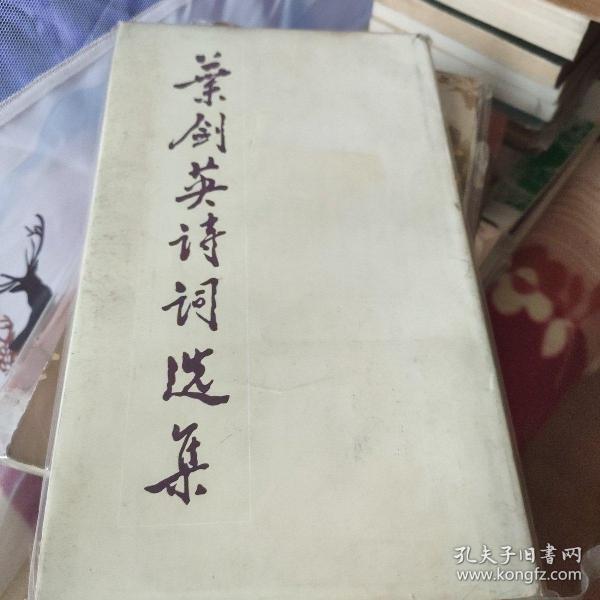 葉剑英诗词选集
孔夫子旧书网
www.kongfz.com